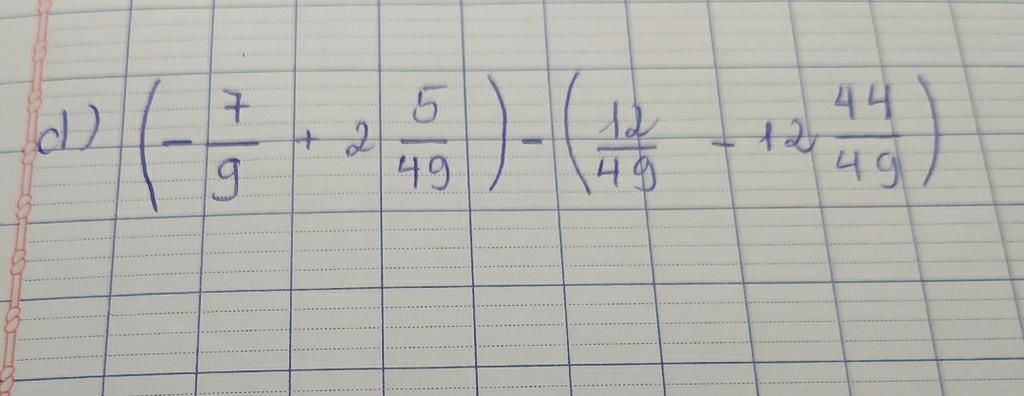 d) (- 7/9 + 2 5/49) - (12/49 - 12 44/49)